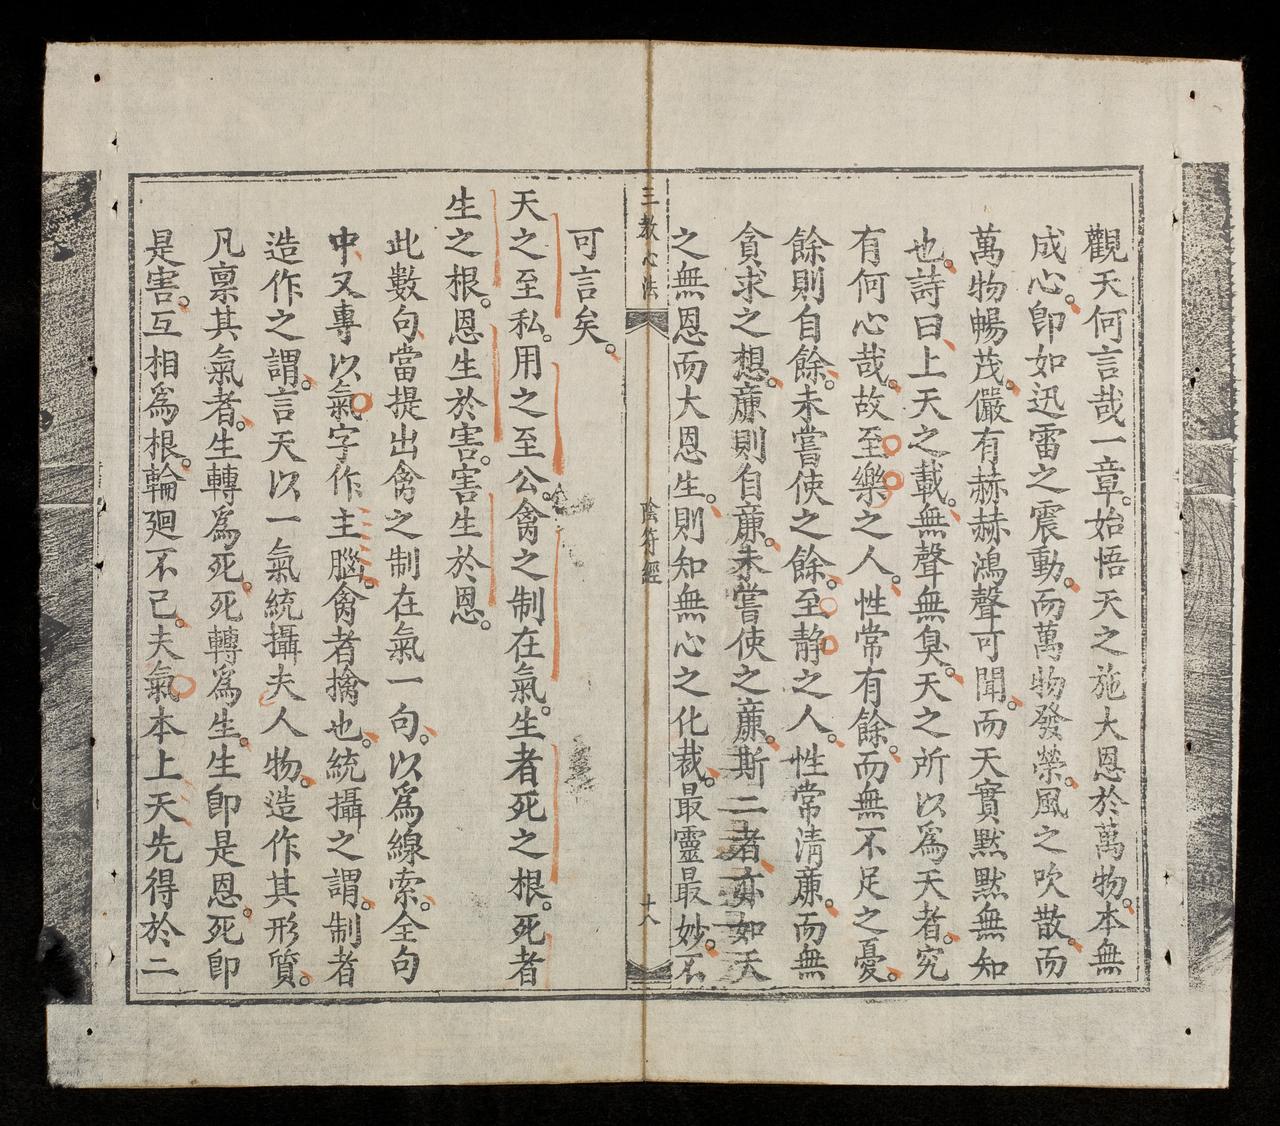 觀天何言哉一章。始悟天之施大恩於萬物。本無
成心。卽如迅雷之震動。而萬物發榮。風之吹散。而
萬物暢茂。儼有赫赫鴻聲可聞。而天實黙黙無知
也。詩曰。上天之載。無聲無臭。天之所以爲天者。究
有何心哉。故至樂之人。性常有餘。而無不足之憂。
餘則自餘。未嘗使之餘。至靜之人。性常淸亷。而無
貪求之想。亷則自亷。未嘗使之亷。斯二者。亦如天
之無恩而大恩生。則知無心之化裁。最靈最妙。不
三教心法
陰符經
十八
可言矣。
天之至私。用之至公。禽之制在氣。生者死之根。死者
生之根。恩生於害。害生於恩。
此數句。當提出禽之制在氣一句。以爲線索。全句
中又專以氣字作主腦。禽者擒也。統攝之謂。制者
造作之謂。言天以一氣統攝夫人物。造作其形質。
凡禀其氣者。生轉爲死。死轉爲生。生卽是恩。死卽
是害。互相爲根。輪廻不已。夫氣本上天先得於二